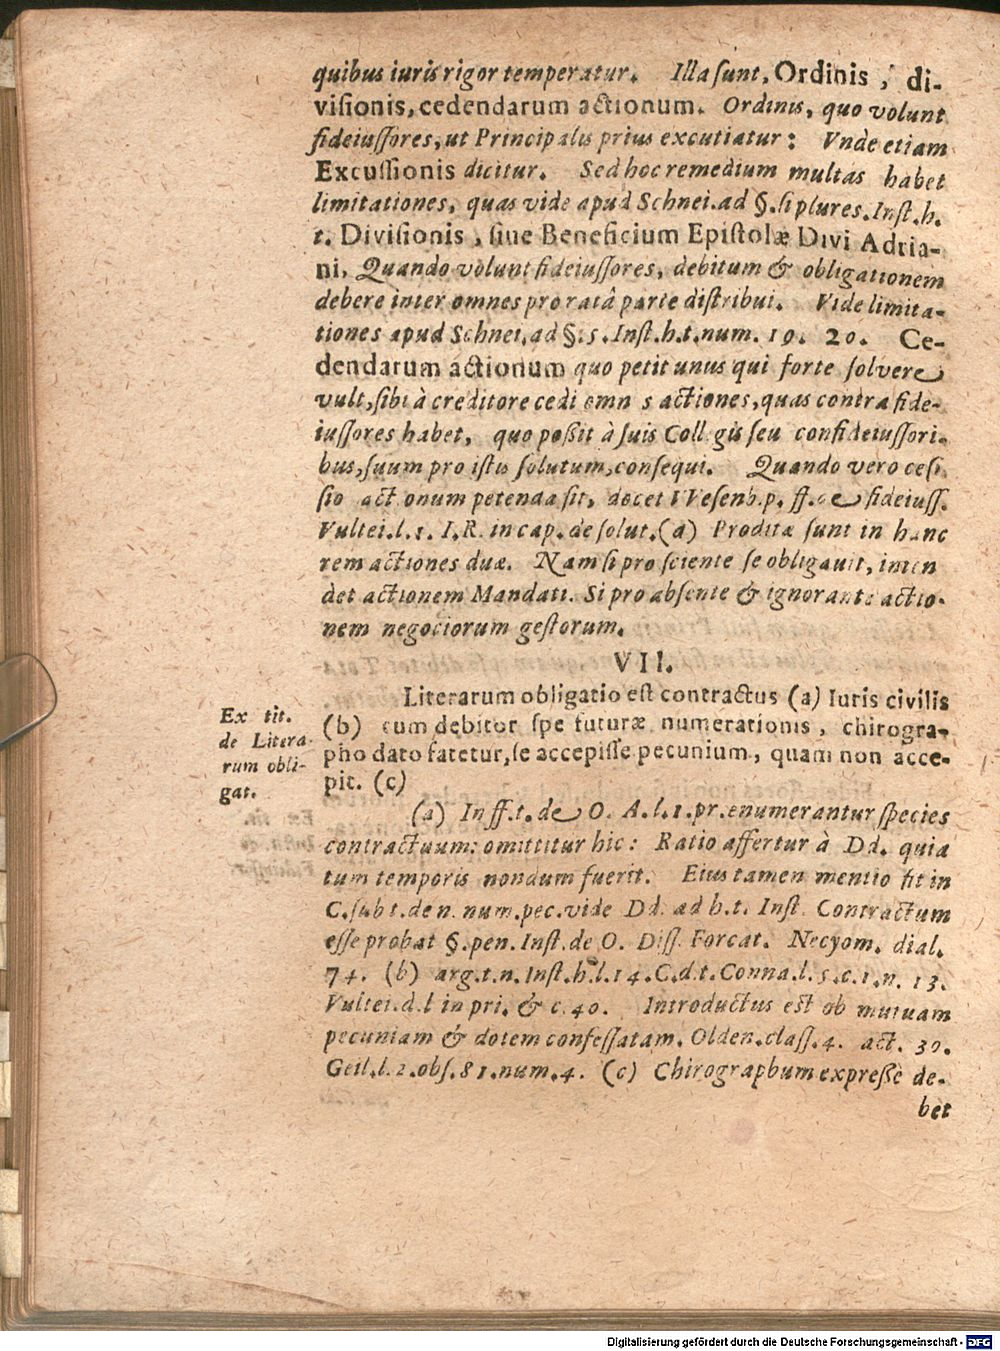 quibus iuris rigor temperatur. Illa sunt, Ordinis, di-
visionis, cedendarum actionum. Ordinis, quo volunt
fideiussores, ut Principalis prius excutiatur: Vnde etiam
Excussionis dicitur. Sed hoc remedium multas habet
limitationes, quas vide apud Schnei. ad §. si plures. Inst. h.
t. Divisionis, siue Beneficium Epistolæ Divi Adria-
ni, Quando volunt fideiussores, debitum & obligationem
debere inter omnes pro ratâ parte distribui. Vide limita-
tiones apud Schnei. ad §. 5. Inst. h. t. num. 19. 20. Ce-
dendarum actionum quo petit unus qui forte solvere
vult, sibi à creditore cedi omn s actiones, quas contra fide-
iussores habet, quo poßit à suis Coll gis seu confideiussori-
bus, suum pro istis solutum, consequi. Quando vero cesi
sio act onum petenda sit, docet VVesenb. p. ff. de fideiuss.
Vultei. l. 1. I. R. in cap. de solut. (a) Proditæ sunt in hanc
rem actiones duæ. Nam si pro sciente se obligauit, inten
det actionem Mandati. Si pro absente & ignorante actio-
nem negociorum gestorum.
VII.
Literarum obligatio est contractus (a) Iuris civilis
(b) cum debitor spe futuræ numerationis, chirogra-
pho dato fatetur, se accepisse pecunium, quam non acce-
pit. (c)
Ex tit.
de Litera-
rum obli-
gat.
(a) In ff. t. de O. A. l. 1. pr. enumerantur species
contractuum: omittitur hic: Ratio affertur à Dd. quia
tum temporis nondum fuerit. Eius tamen mentio fit in
C. sub t. de n. num. pec. vide Dd. ad h. t. Inst. Contractum
esse probat §. pen. Inst. de O. Diss. Forcat. Necyom. dial.
74. (b) arg. t. n. Inst. h. l. 14. C. d. t. Conna. l. 5. c. 1. n. 13.
Vultei. d. l in pri. & c. 40. Introductus est ob mutuam
pecuniam & dotem confessatam. Olden. class. 4. act. 30.
Geil. l. 2. obs. 81. num. 4. (c) Chirographum expreßè de-
bet
Digitalisierung gefördert durch die Deutsche Forschungsgemeinschaft - DFG